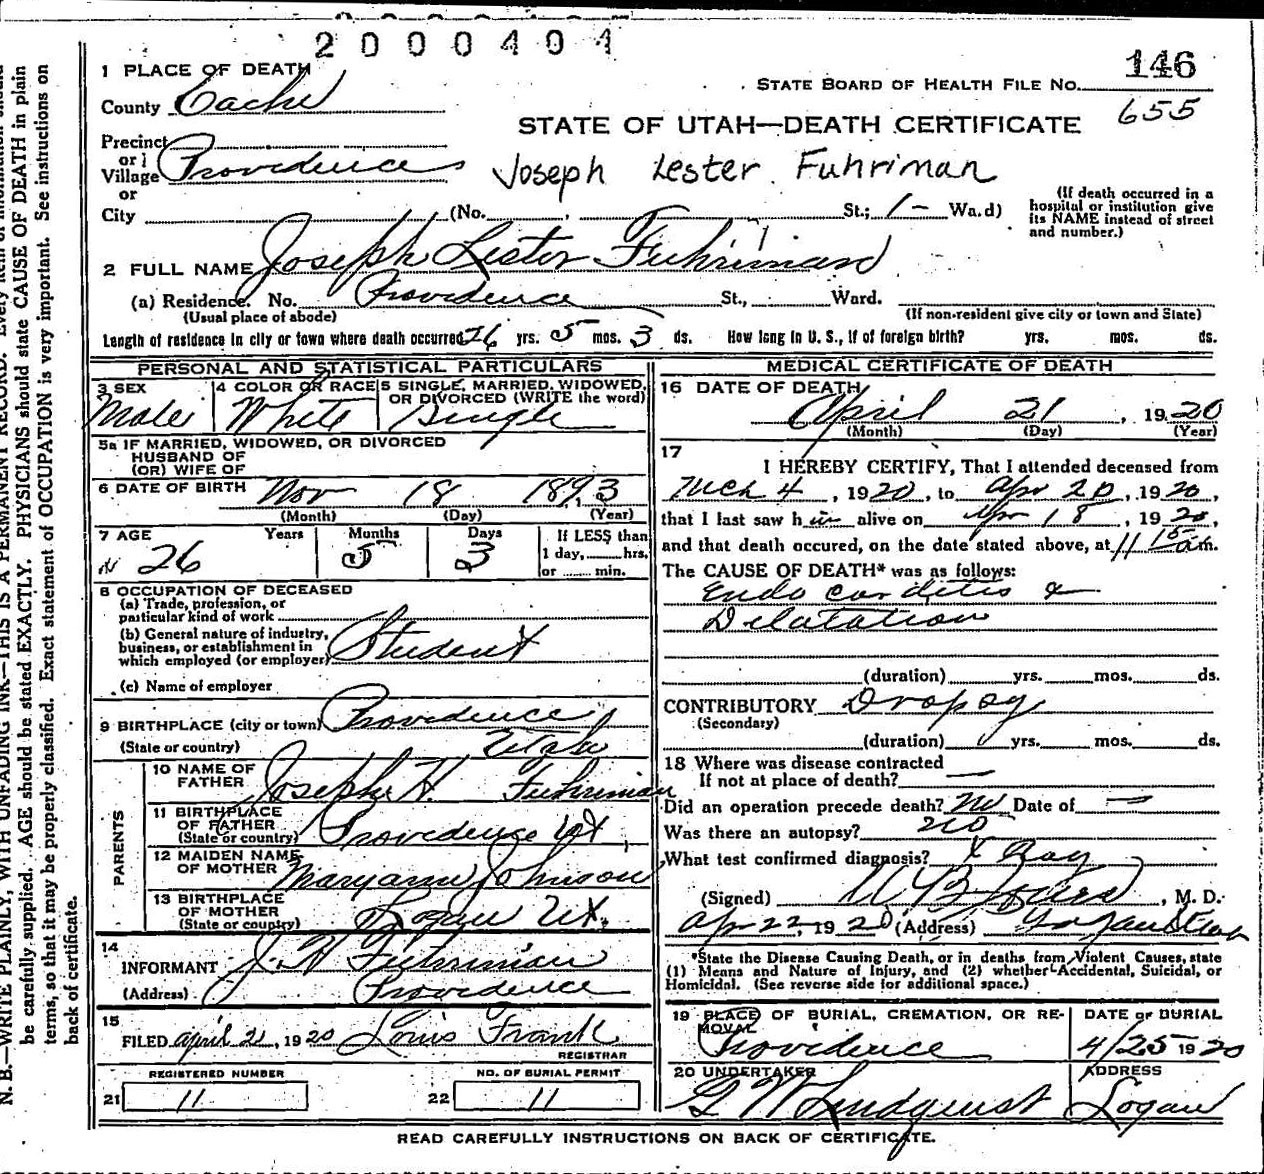 2000404
146
1 PLACE OF DEATH
STATE BOARD OF HEALTH FILE No.
County Cache
655
STATE OF UTAH—DEATH CERTIFICATE
Precinct
or
Village Providence
Joseph Lester Fuhriman
or
City (No. , St.; 1- Wa.d)
(If death occurred in a
hospital or institution give
its NAME instead of street
and number.)
2 FULL NAME Joseph Lester Fuhriman
(a) Residence. No. Providence St., Ward.
(Usual place of abode)
(If non-resident give city or town and State)
Length of residence in city or town where death occurred 26 yrs. 5 mos. 3 ds. How long in U. S., if of foreign birth? yrs. mos. ds.
PERSONAL AND STATISTICAL PARTICULARS
3 SEX
Male
4 COLOR OR RACE
White
5 SINGLE, MARRIED, WIDOWED,
OR DIVORCED (WRITE the word)
Single
5a IF MARRIED, WIDOWED, OR DIVORCED
HUSBAND OF
(OR) WIFE OF
6 DATE OF BIRTH Nov 18 1893
(Month) (Day) (Year)
7 AGE Years Months Days
26 5 3
If LESS than
1 day, hrs.
or min.
8 OCCUPATION OF DECEASED
(a) Trade, profession, or
particular kind of work
(b) General nature of industry,
business, or establishment in
which employed (or employer) Student
(c) Name of employer
9 BIRTHPLACE (city or town) Providence
(State or country) Utah
PARENTS
10 NAME OF
FATHER Joseph H. Fuhriman
11 BIRTHPLACE
OF FATHER
(State or country) Providence Ut
12 MAIDEN NAME
OF MOTHER Maryann Johnson
13 BIRTHPLACE
OF MOTHER
(State or country) Logan Ut.
14
INFORMANT J. H Fuhriman
(Address) Providence
15
FILED april 21, 1920 Louis Frank
REGISTRAR
REGISTERED NUMBER
21 11
NO. OF BURIAL PERMIT
22 11
MEDICAL CERTIFICATE OF DEATH
16 DATE OF DEATH
April 21, 1920
(Month) (Day) (Year)
17
I HEREBY CERTIFY, That I attended deceased from
Mch 4, 1920, to Apr 20, 1920,
that I last saw him alive on Apr 18, 1920,
and that death occured, on the date stated above, at 11 15 am.
The CAUSE OF DEATH* was as follows:
Endo carditis &
Dilatation
(duration) yrs. mos. ds.
CONTRIBUTORY Dropsy
(Secondary)
(duration) yrs. mos. ds.
18 Where was disease contracted
If not at place of death? —
Did an operation precede death? No Date of —
Was there an autopsy? no
What test confirmed diagnosis? X Ray
(Signed) M. D.
Apr 22, 1920 (Address) Logan Utah
*State the Disease Causing Death, or in deaths from Violent Causes, state
(1) Means and Nature of Injury, and (2) whether Accidental, Suicidal, or
Homicidal. (See reverse side for additional space.)
19 PLACE OF BURIAL, CREMATION, OR RE-
MOVAL
Providence
DATE OF BURIAL
4/25 1920
20 UNDERTAKER
G W Lindquist
ADDRESS
Logan
READ CAREFULLY INSTRUCTIONS ON BACK OF CERTIFICATE.
N. B.—WRITE PLAINLY, WITH UNFADING INK—THIS IS A PERMANENT RECORD. Every item of information should
be carefully supplied. AGE should be stated EXACTLY. PHYSICIANS should state CAUSE OF DEATH in plain
terms, so that it may be properly classified. Exact statement of OCCUPATION is very important. See instructions on
back of certificate.